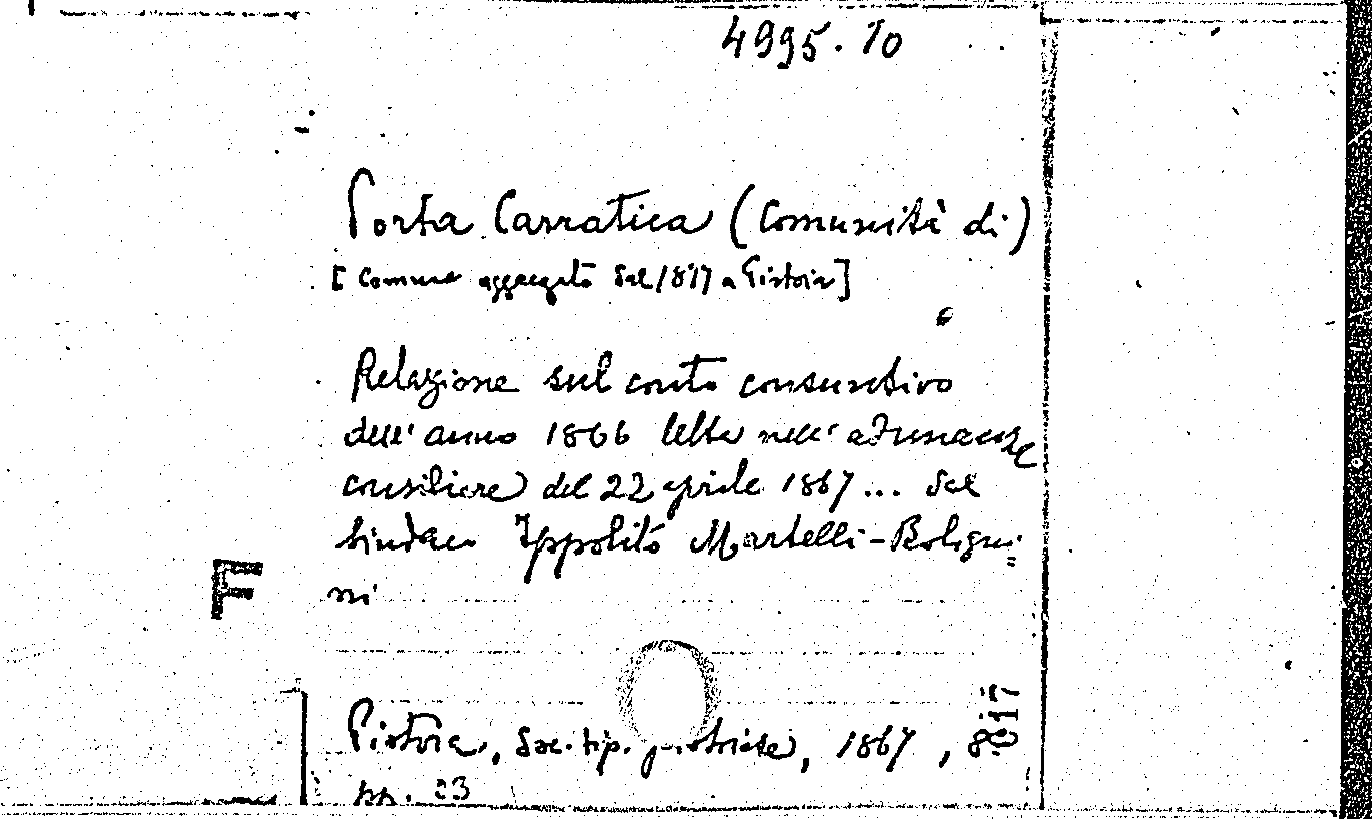 4995. 10
Porta Carratica (Comunità di)
[Comune aggregato dal 1877 a Pistoia]
Relazione sul conto consuntivo
dell'anno 1866 letta nell'adunanza
consiliare del 22 aprile 1867... dal
sindaco Ippolito Martelli-Bologni=
ni
F
Pistoia, Soc. tip. pistoiese, 1867, 8º
pp. 23